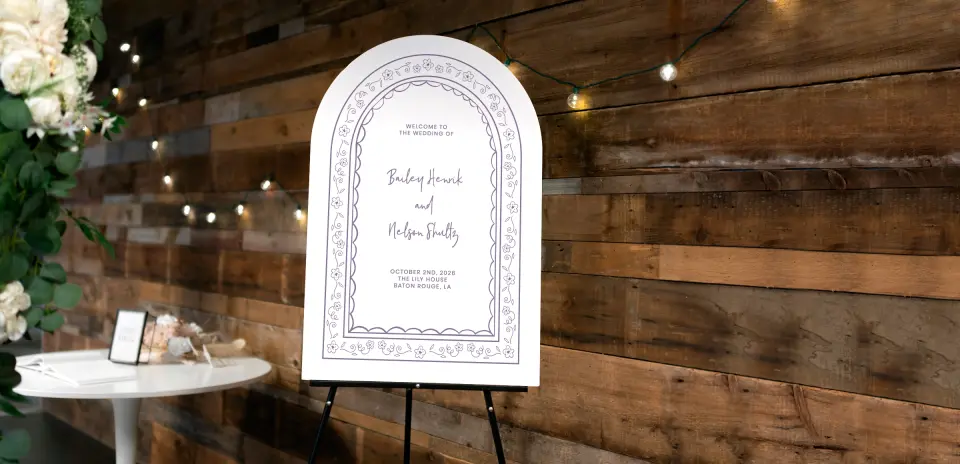 WELCOME TO
THE WEDDING OF
Bailey Henrik
and
Nelson Shultz
OCTOBER 2ND, 2026
THE LILY HOUSE
BATON ROUGE, LA